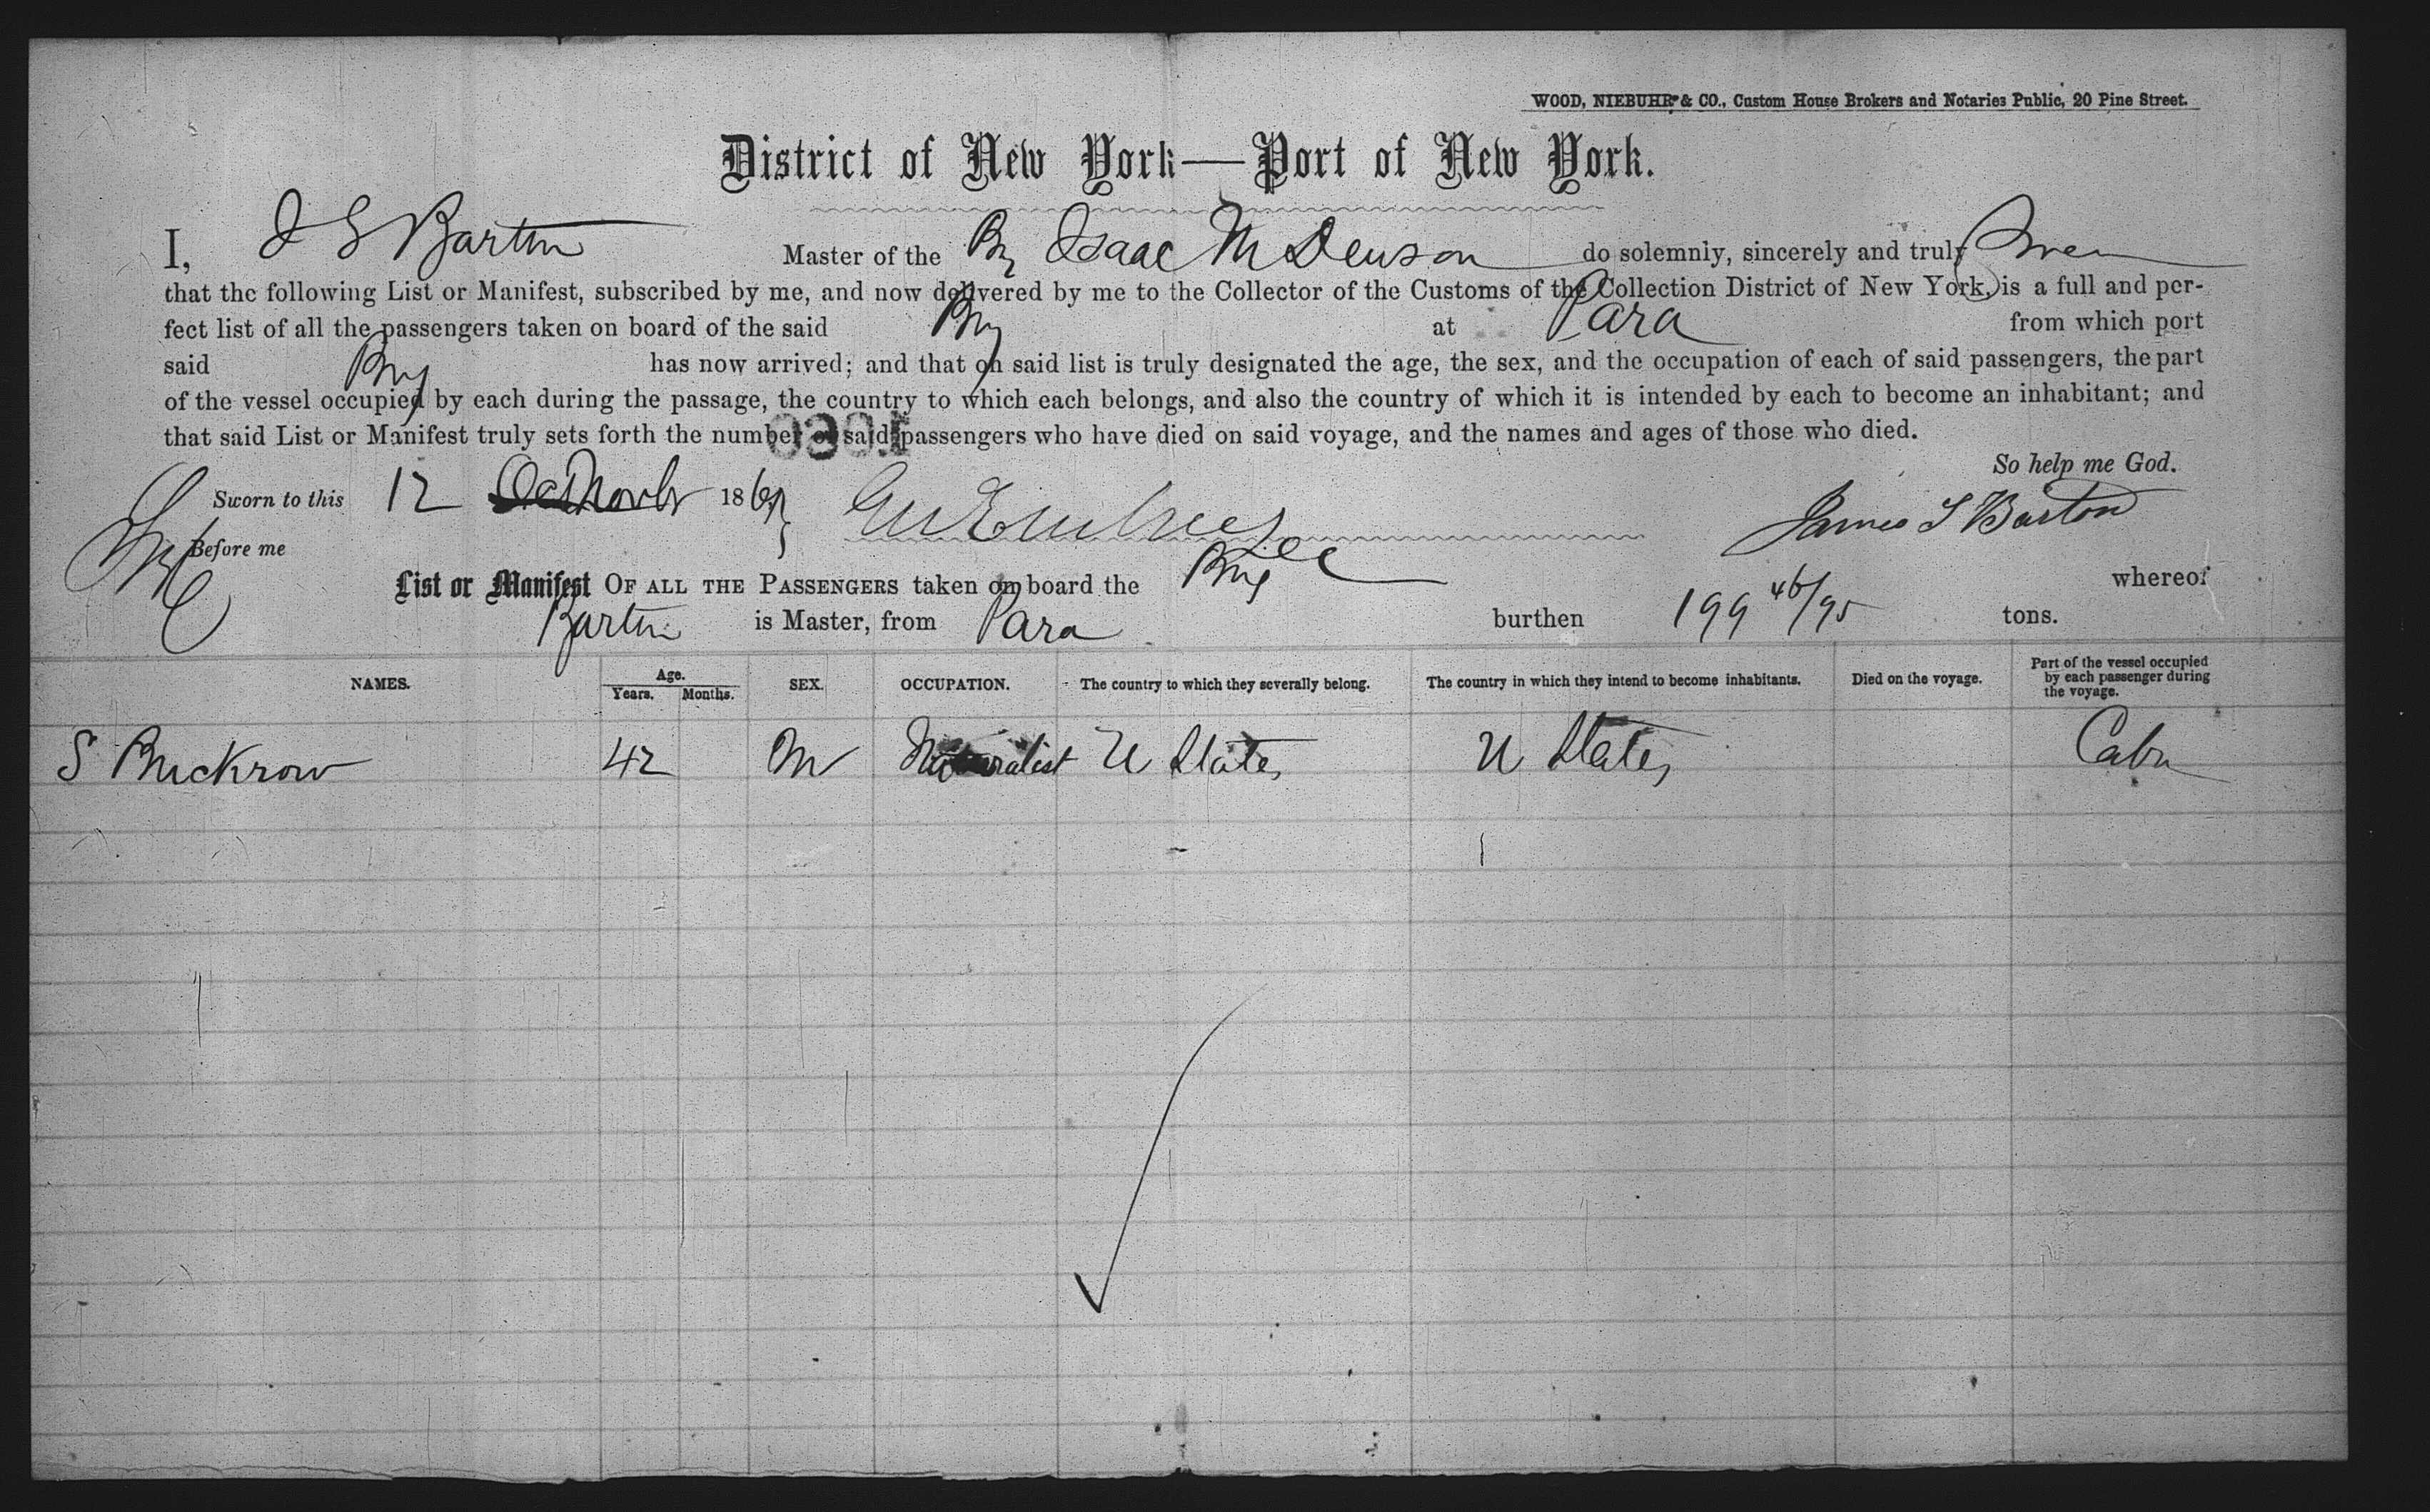 WOOD, NIEBUHR & CO., Custom House Brokers and Notaries Public, 20 Pine Street.
District of New York—Port of New York.
I, J S Barton Master of the Brig Isaac M Denson do solemnly, sincerely and truly Swear
that the following List or Manifest, subscribed by me, and now delivered by me to the Collector of the Customs of the Collection District of New York, is a full and per-
fect list of all the passengers taken on board of the said Brig at Para from which port
said Brig has now arrived; and that on said list is truly designated the age, the sex, and the occupation of each of said passengers, the part
of the vessel occupied by each during the passage, the country to which each belongs, and also the country of which it is intended by each to become an inhabitant; and
that said List or Manifest truly sets forth the number of said passengers who have died on said voyage, and the names and ages of those who died.
So help me God.
Sworn to this 12 Novbr 186 James S Barton
Before me
List or Manifest OF ALL THE PASSENGERS taken on board the Brig whereof
Barton is Master, from Para burthen 199 46/95 tons.
NAMES. Age. Years. Months. SEX. OCCUPATION. The country to which they severally belong. The country in which they intend to become inhabitants. Died on the voyage. Part of the vessel occupied by each passenger during the voyage.
S Buckrow 42 M Naturalist U States U States Cabn